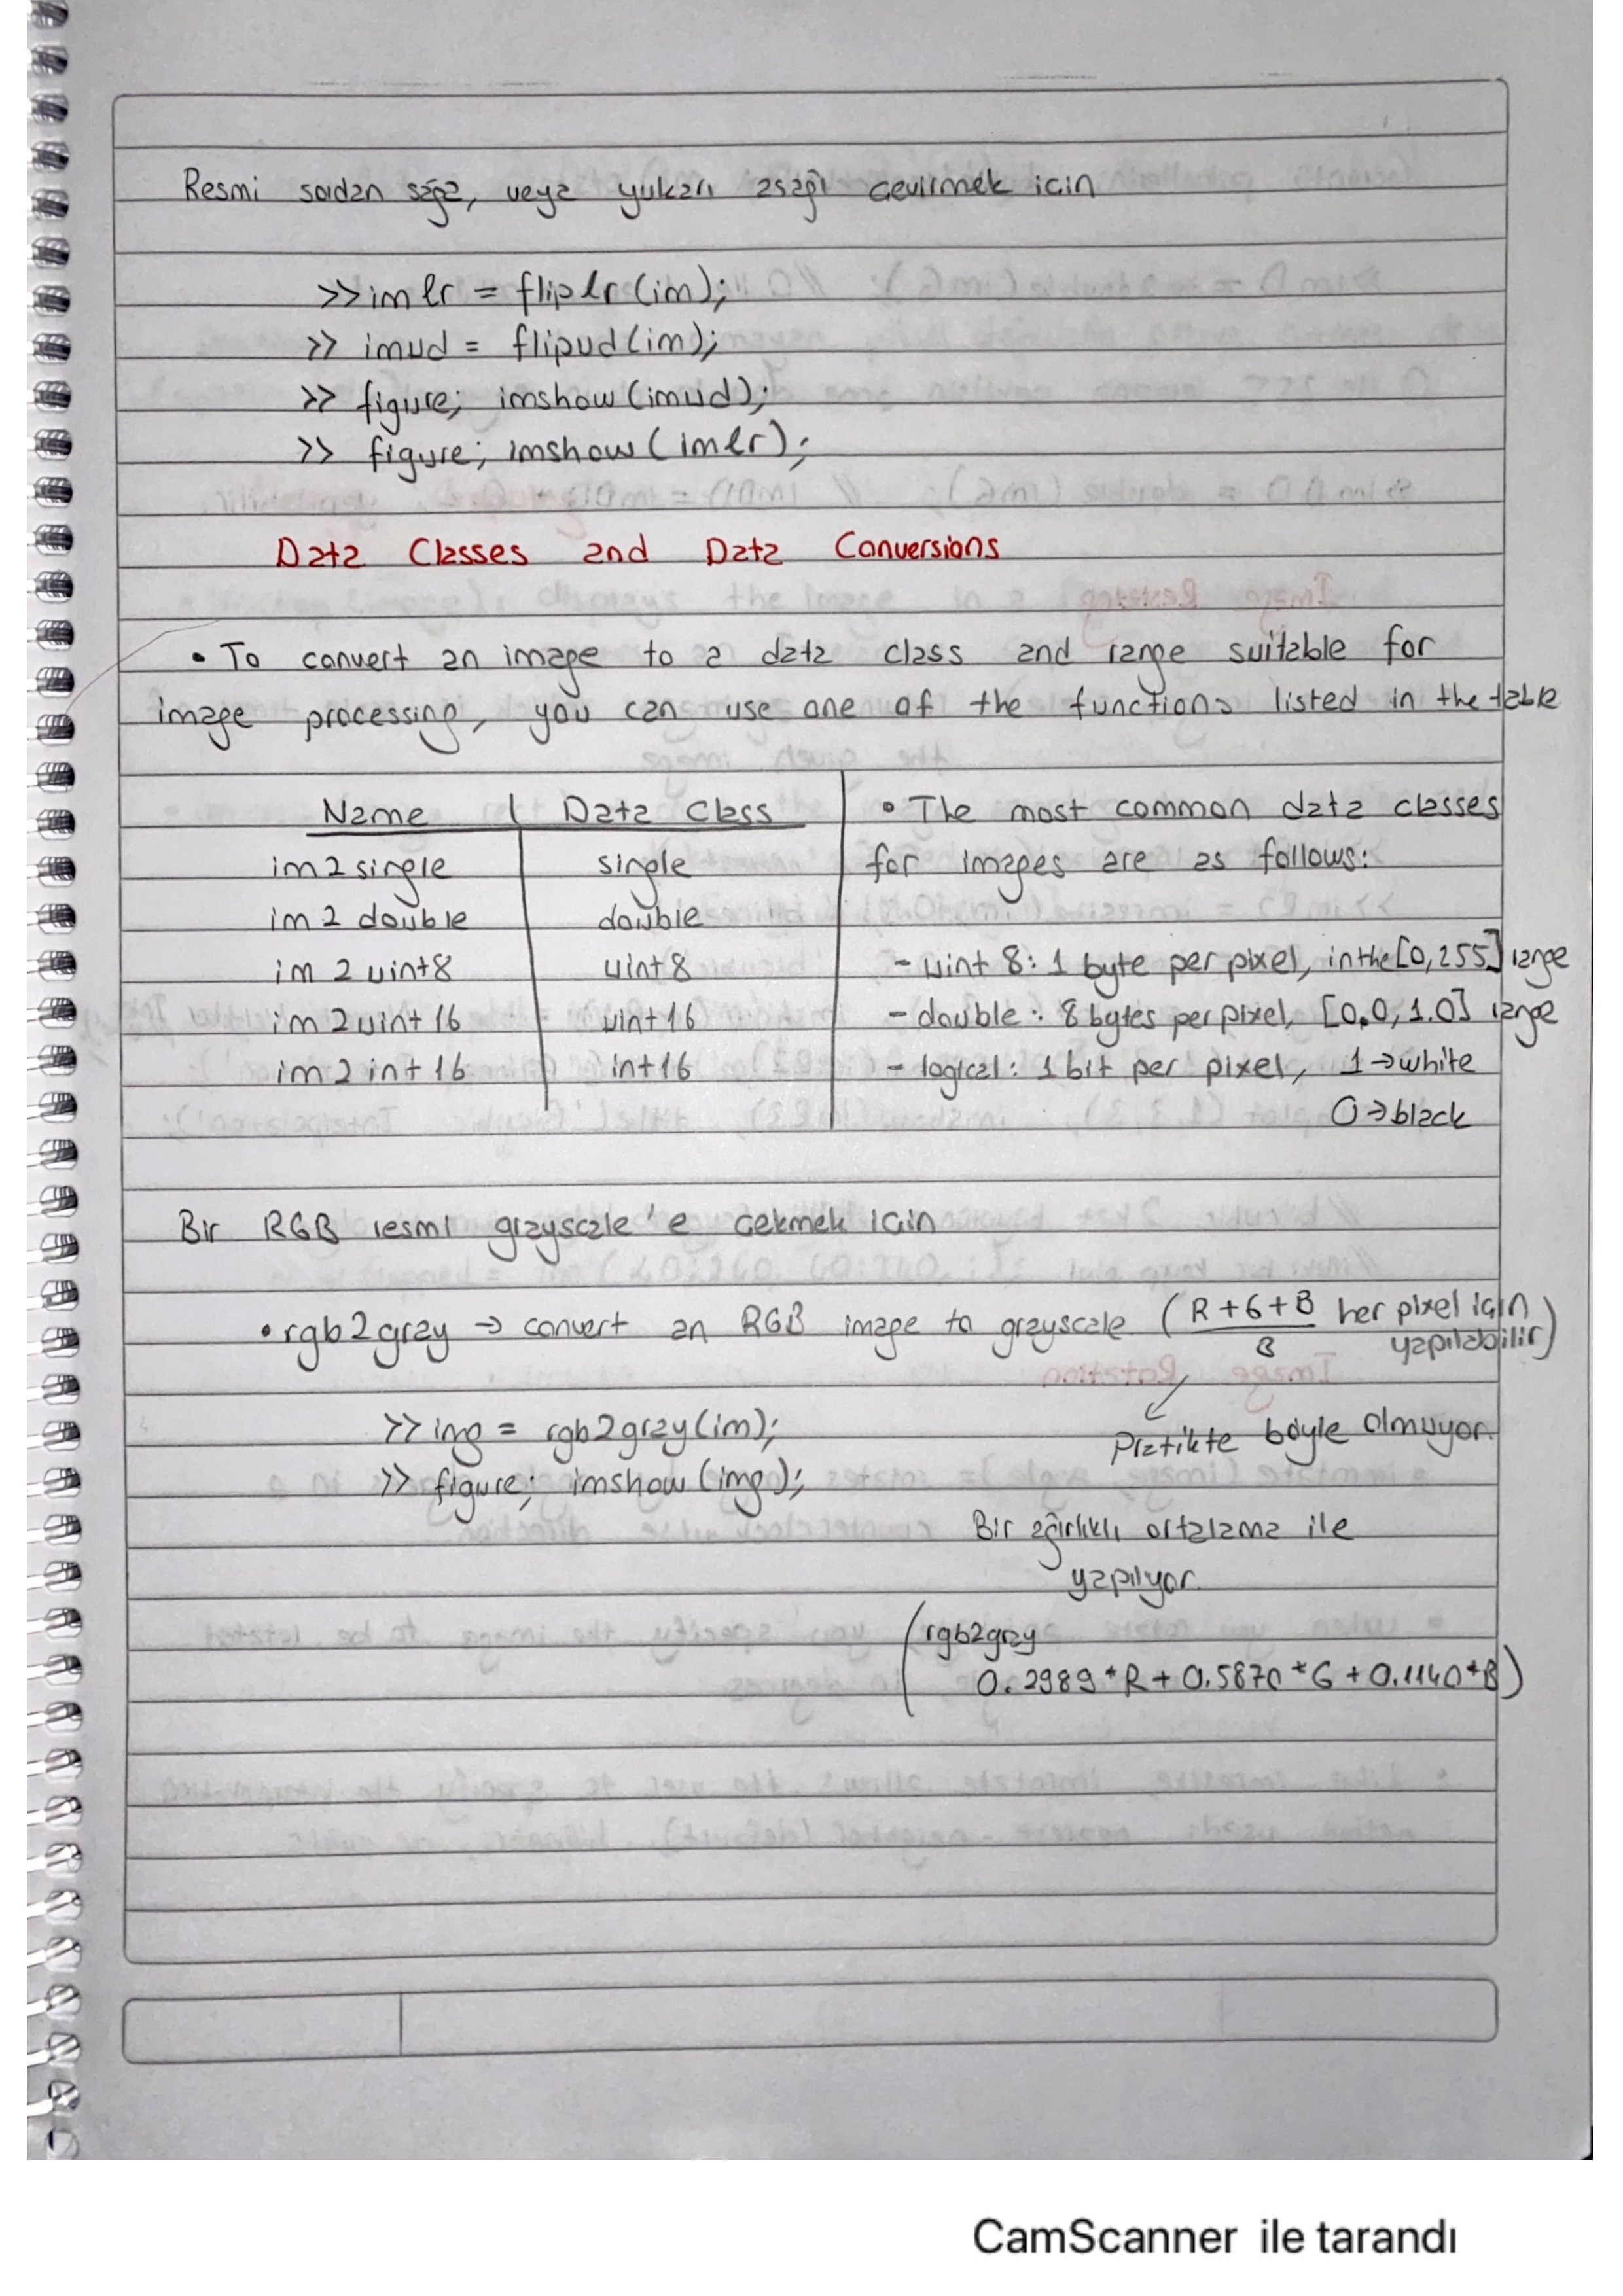 Resmi soldan sağa, veya yukarı asağı cevirmek icin
>> imlr = fliplr(im);
>> imud = flipud(im);
>> figure; imshow(imud);
>> figure; imshow(imlr);
Data Classes and Data Conversions
• To convert an image to a data class and range suitable for
image processing, you can use one of the functions listed in the table
Name | Data Class
im2single single
im2double double
im2uint8 uint8
im2uint16 uint16
im2int16 int16
• The most common data classes
for images are as follows:
- uint 8: 1 byte per pixel, in the [0,255] range
- double: 8 bytes per pixel, [0.0, 1.0] range
- logical: 1 bit per pixel, 1→white
0→black
Bir RGB resmi grayscale'e cekmek icin
• rgb2gray → convert an RGB image to grayscale (R+G+B / 3 her pixel için
yapılabilir)
>> img = rgb2gray(im);
>> figure; imshow(img);
Pratikte böyle olmuyor.
Bir ağırlıklı ortalama ile
yapılıyor.
(rgb2gray
0.2989*R + 0.5870*G + 0.1140*B)
CamScanner ile tarandı